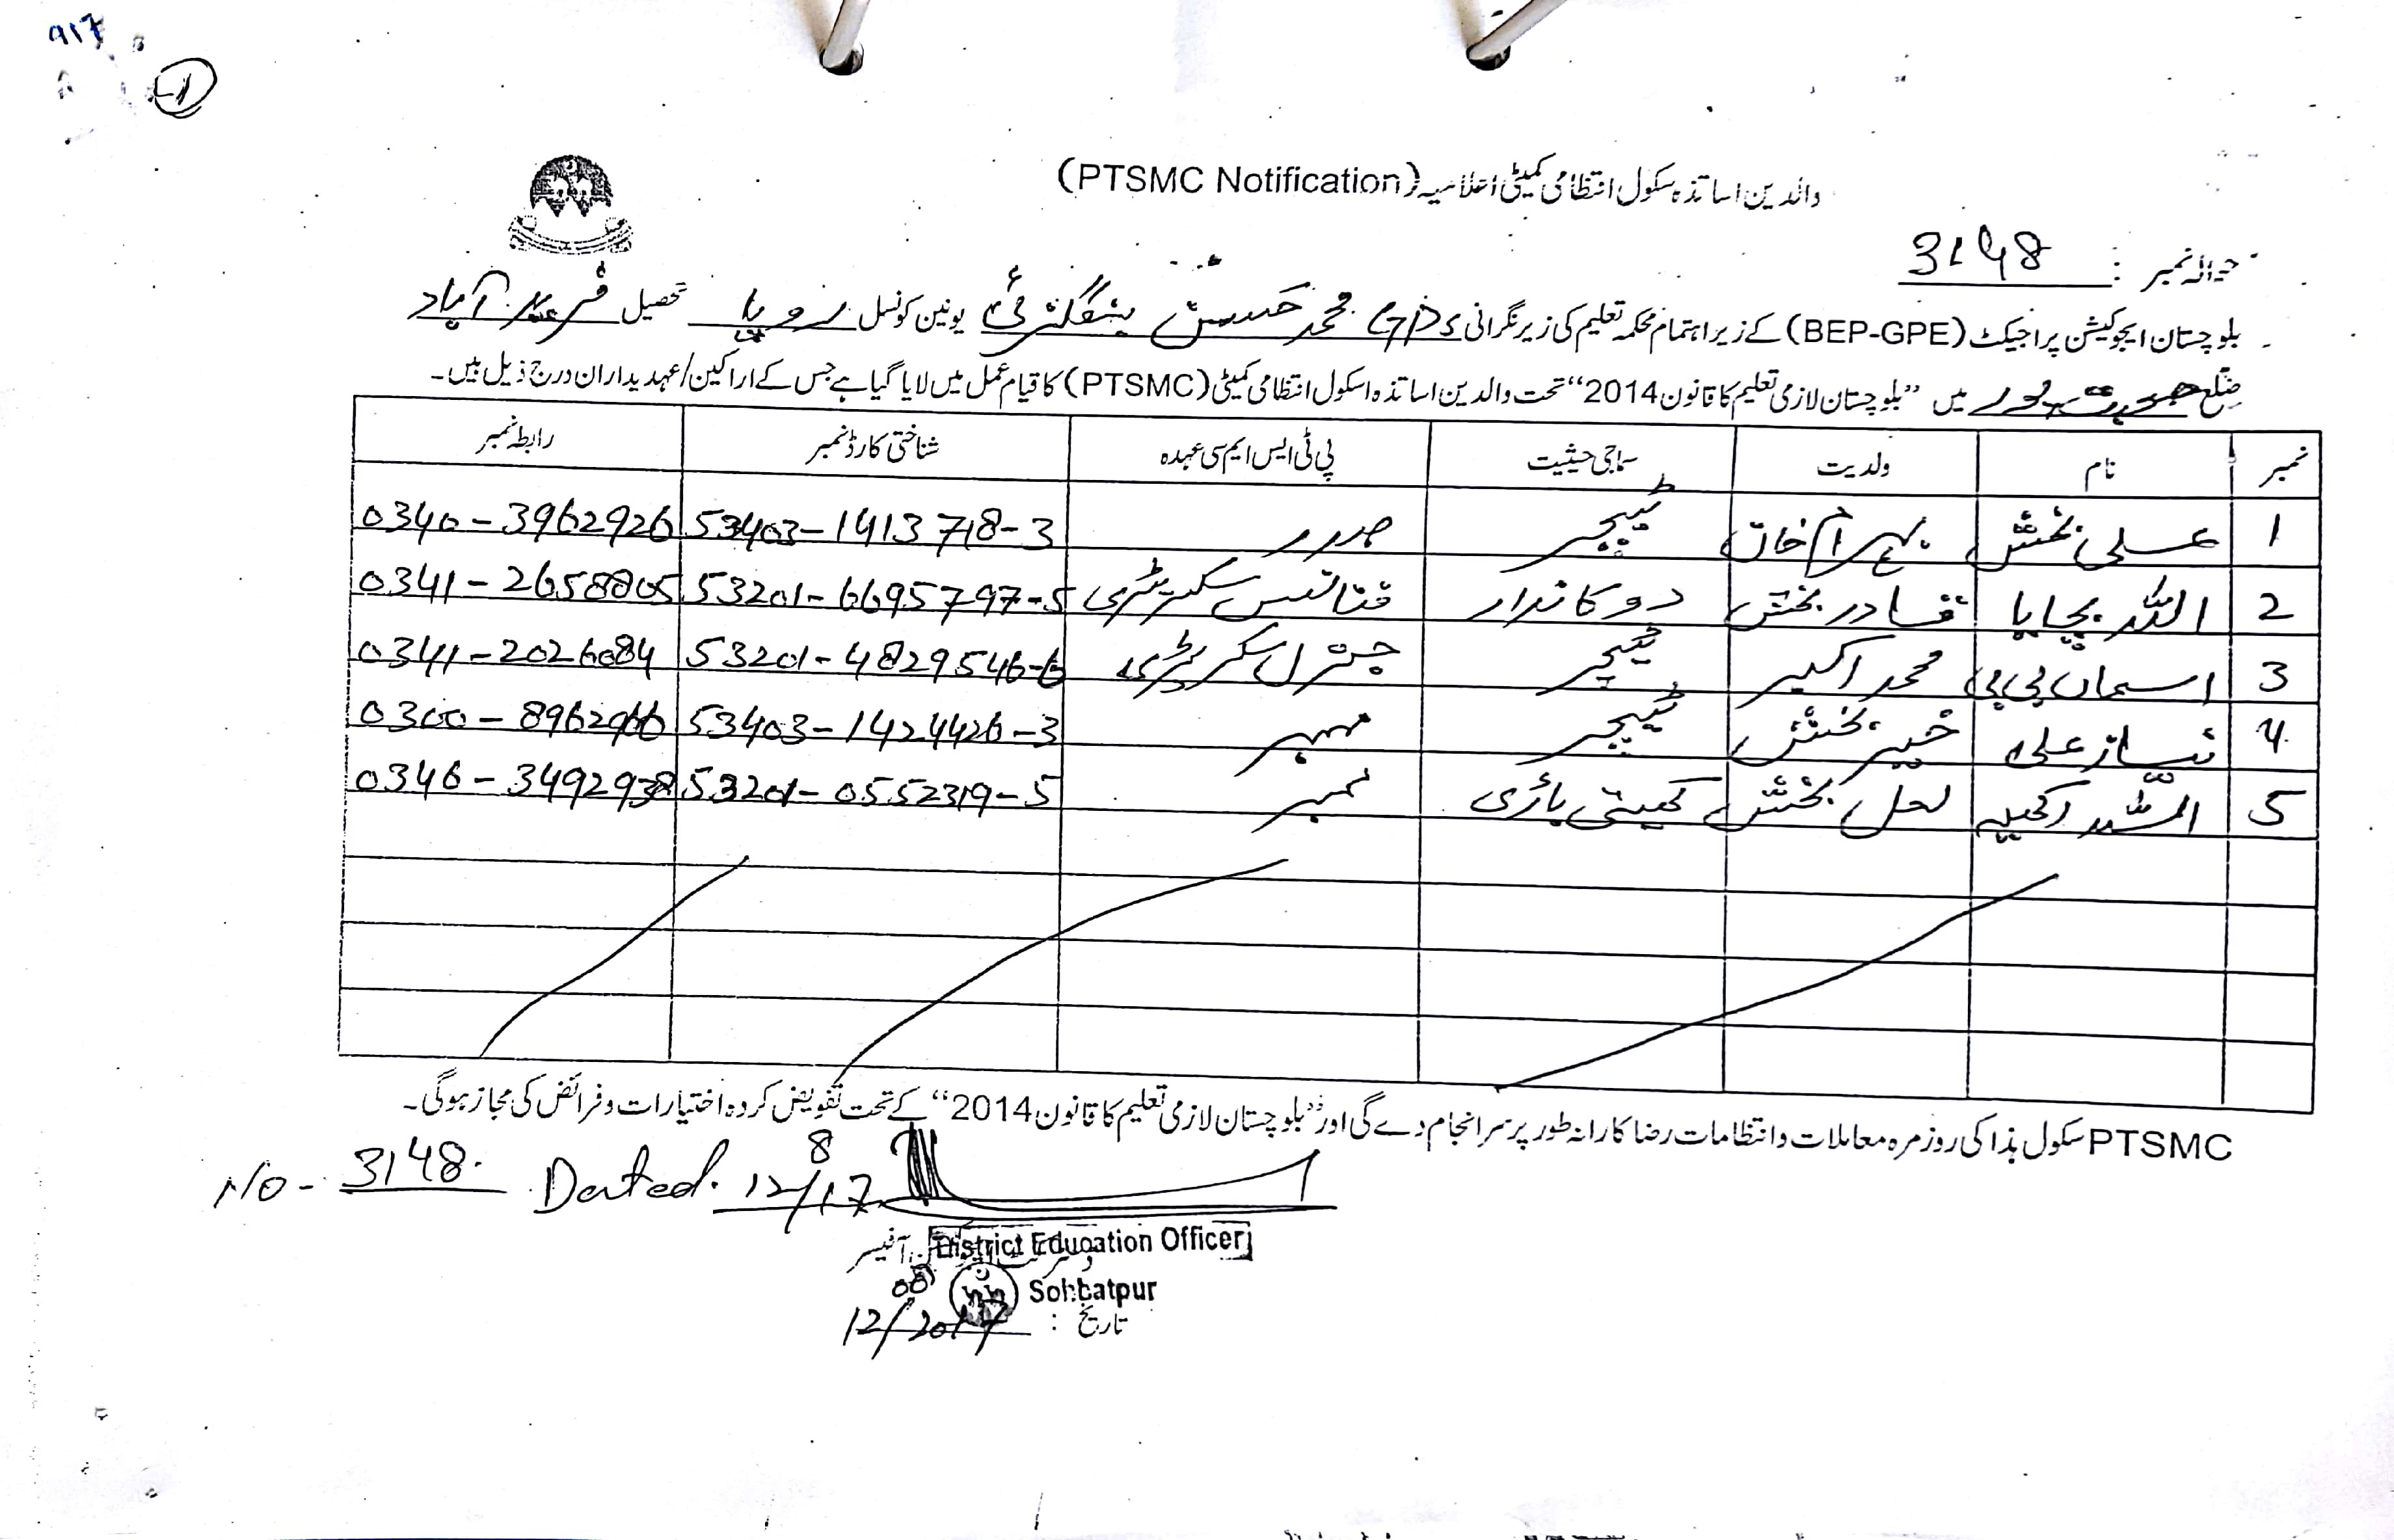 917
1
والدین اساتذہ سکول انتظامی کمیٹی اعلامیہ (PTSMC Notification)
حوالہ نمبر : 3148
بلوچستان ایجوکیشن پراجیکٹ (BEP-GPE) کے زیر اہتمام محکمہ تعلیم کی زیر نگرانی محمد حسن بنگلزئی یونین کونسل تحصیل فرید آباد
ضلع صحبت پور میں "بلوچستان لازمی تعلیم کا قانون 2014" تحت والدین اساتذہ اسکول انتظامی کمیٹی (PTSMC) کا قیام عمل میں لایا گیا ہے جس کے اراکین/عہدیداران درج ذیل ہیں۔
نمبر نام ولدیت سماجی حیثیت پی ٹی ایس ایم سی عہدہ شناختی کارڈ نمبر رابطہ نمبر
1 علی بخش بہرام خان ٹیچر صدر 53403-1413718-3 0340-3962926
2 اللہ بچایا قادر بخش دوکاندار فنانس سکریٹری 53201-6695797-5 0341-2658805
3 اسماں بی بی محمد اکبر ٹیچر جنرل سکریٹری 53201-4829546-6 0341-2026084
4 نیاز علی خیر بخش ٹیچر ممبر 53403-1424426-3
5 اللہ رکھیہ لعل بخش کھیتی باڑی ممبر 53201-0552319-5 0346-3492938
PTSMC سکول ہذا کی روزمرہ معاملات و انتظامات رضا کارانہ طور پر سرانجام دے گی اور "بلوچستان لازمی تعلیم کا قانون 2014" کے تحت تفویض کردہ اختیارات و فرائض کی مجاز ہوگی۔
No - 3148. Dated. 12/8/17
District Education Officer
آفیسر
Sohbatpur
تاریخ : 12/08/2017